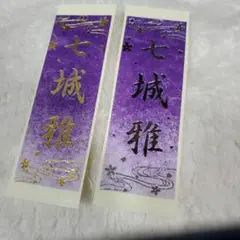 七城雅
七城雅